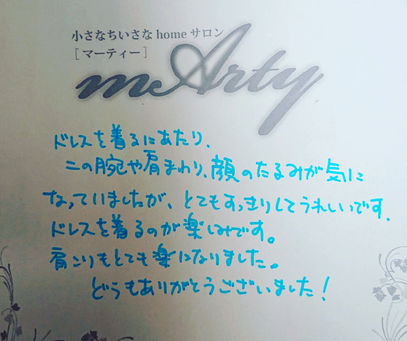 小さなちいさなhomeサロン
[マーティー]
mArty
ドレスを着るにあたり、
二の腕や肩まわり、顔のたるみが気に
なっていましたが、とてもすっきりしてうれしいです。
ドレスを着るのが楽しみです。
肩こりもとても楽になりました。
どうもありがとうございました!